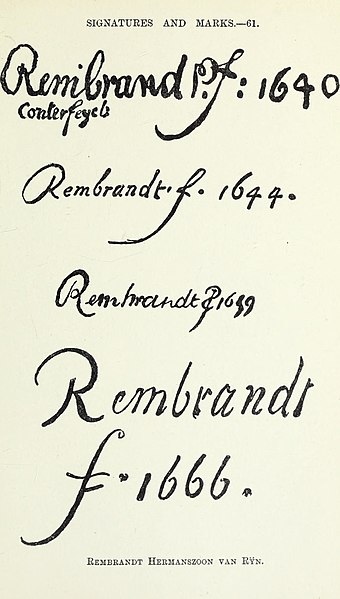 SIGNATURES AND MARKS.—61.
Rembrand P. f: 1640
Conterfeycts
Rembrandt. f. 1644.
Rembrandt 1659
Rembrandt
f. 1666.
REMBRANDT HERMANSZOON VAN RŸN.